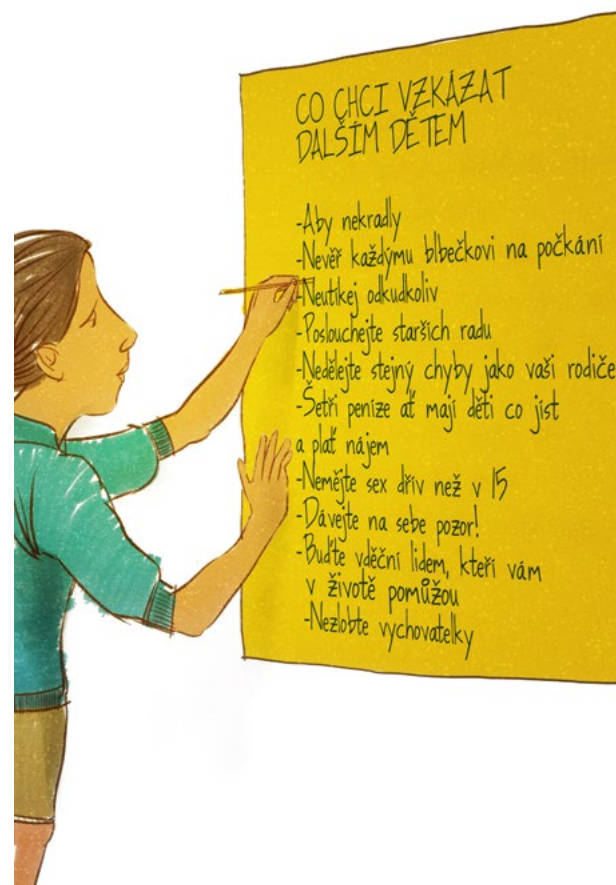 CO CHCI VZKÁZAT
DALŠÍM DĚTEM
-Aby nekradly
-Nevěř každýmu blbečkovi na počkání
-Neutíkej odkudkoliv
-Poslouchejte starších radu
-Nedělejte stejný chyby jako vaši rodiče
-Šetři peníze ať mají děti co jíst
a plať nájem
-Nemějte sex dřív než v 15
-Dávejte na sebe pozor!
-Buďte vděční lidem, kteří vám
v životě pomůžou
-Nezlobte vychovatelky